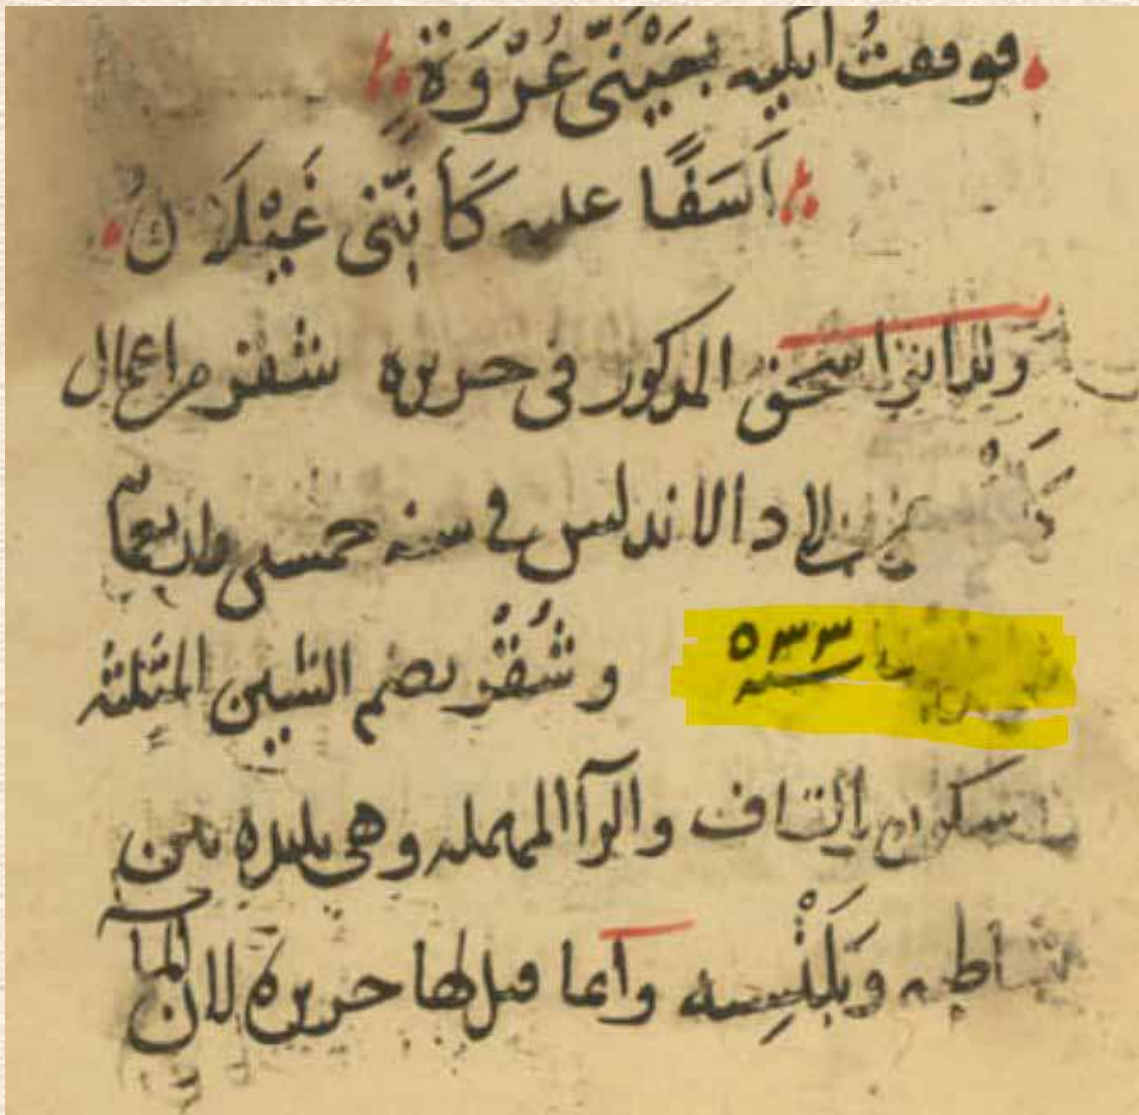 فوقفتُ ابكيه بعَيْنَيّ عُرْوَةٍ
اَسَفًا عليه كَاَنّنى غَيْلَانُ
ولد ابو اسحق المذكور فى جزيره شقر من اعمال
بلاد الاندلس فى سنه خمسين واربعمائه
سنه ٥٣٣ وشُقْر بضم الشين المثلثه
سكون القاف والرآ المهمله وهى بليده بين
شاطبه وبَلَنْسِيه وانما قيل لها جزيرة لان المآ